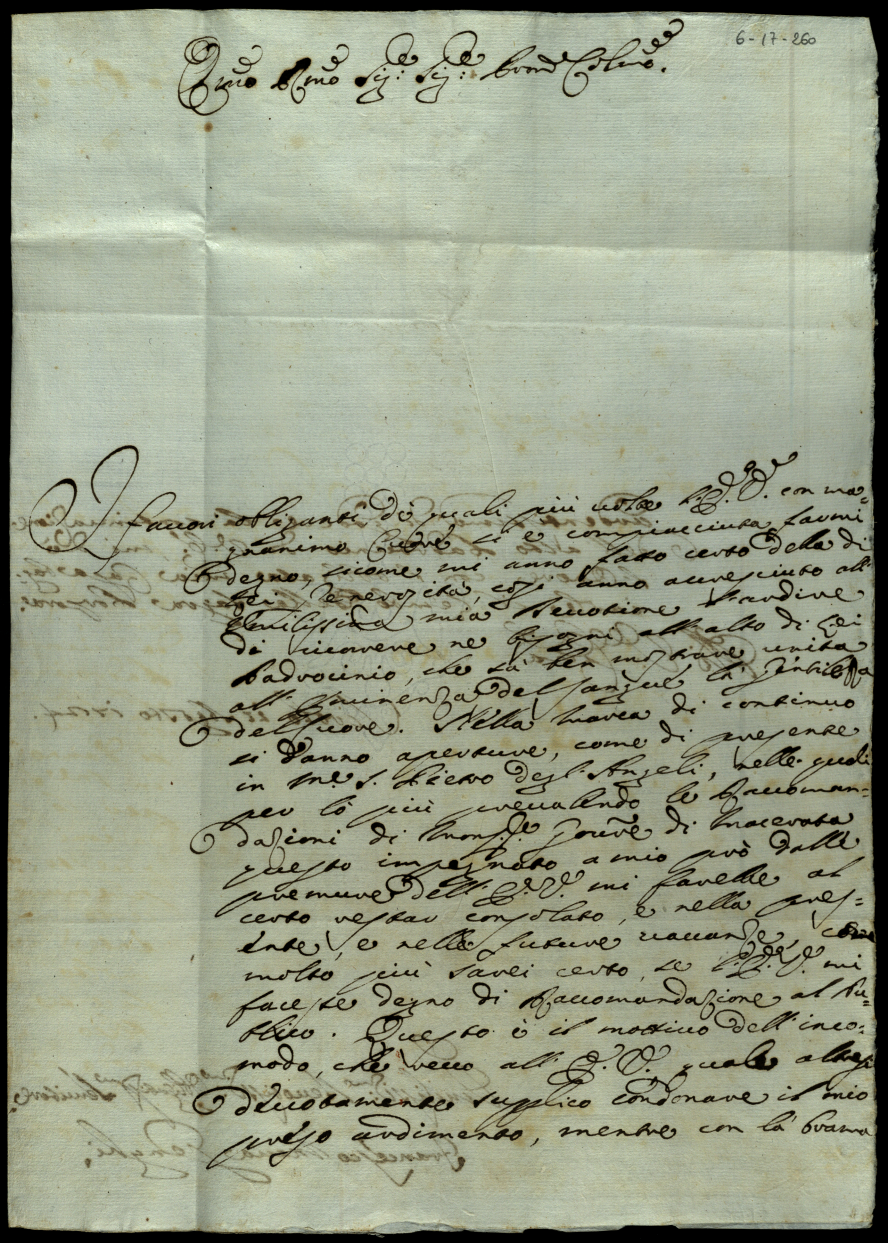 6-17-260
Emo Rmo Sig:re Sig:re Prone Colmo.
I fauori obliganti, di quali più uolte l'E. V. con ma-
gnanimo Cuore si è compiacciuta farmi
degno, sicome mi anno fatto certo della di
Lei Generosità, così anno accresciuto all'
Umilissima mia deuotione l'ardire
di ricorrere ne bisogni all'alto di Lei
Padrocinio, che sà ben mostrare unita
all'Eminenza del sangue la Gentilezza
del Cuore. Nella Marca di continuo
si danno aperture, come di presente
in Me S. Pietro degl'Angeli, nelle quali
per lo più preualendo le Raccoman-
dazioni di Monsre Goure di Macerata
questo impegnato a mio prò dalle
premure dell'E. V. mi farebbe al
certo restar consolato, e nella pres-
ente, e nelle future uacanze, come
molto più sarei certo, se l'E. V. mi
facesse degno di Raccomandazione al Pu-
blico. Questo è il mottiuo dell'inco-
modo, che reco all'E. V. quale altresi
deuotamente supplico condonare il mio
preso ardimento, mentre con la brama